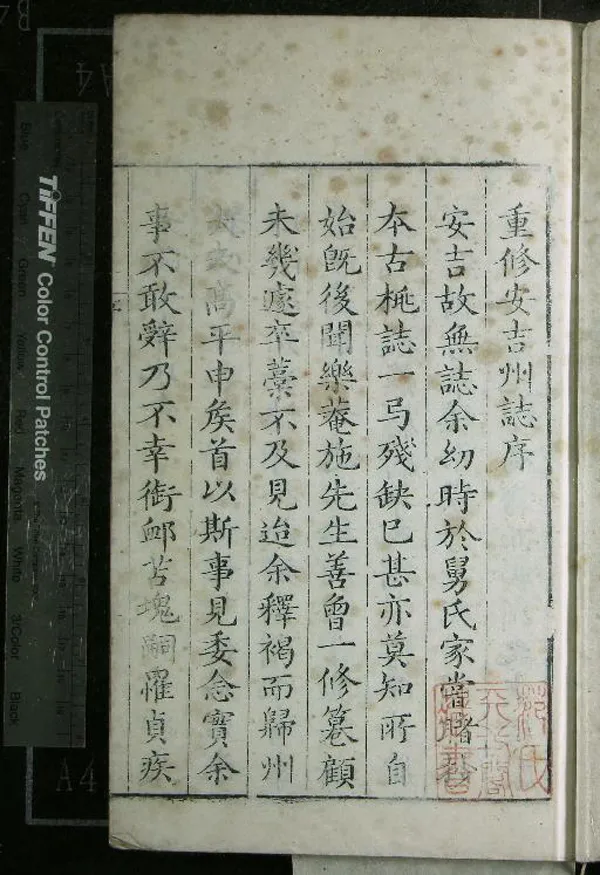 重修安吉州誌序
安吉故無誌余幼時於舅氏家嘗睹
本古桃誌一弓殘缺已甚亦莫知所自
始旣後聞樂菴施先生善曾一修纂顧
未幾遽卒藁不及見迨余釋褐而歸州
高平申矦首以斯事見委念實余
事不敢辭乃不幸銜䘏苫塊嗣罹貞疾
范氏
天一閣
藏書
TIFFEN Color Control Patches
Blue Cyan Green Yellow Red Magenta White 3/Color Black
A4
A4